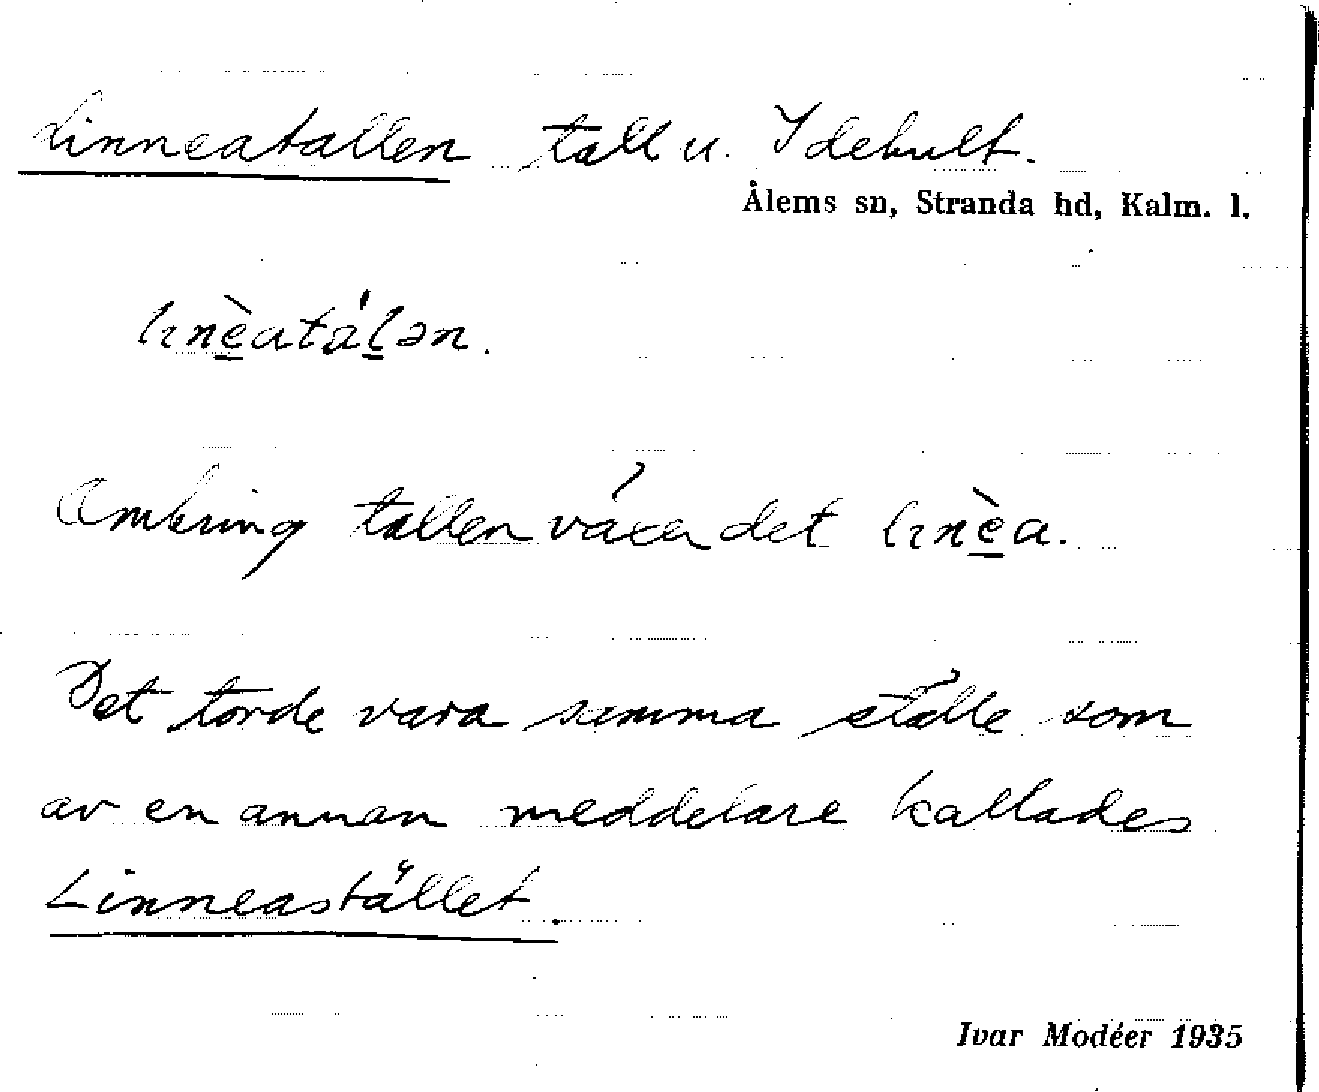 Linneatallen tall u. Idehult.
Ålems sn, Stranda hd, Kalm. l.
linèatálən.
Omkring tallen växer det linèa.
Det torde vara samma ställe som
av en annan meddelare kallades
Linneastället.
Ivar Modéer 1935